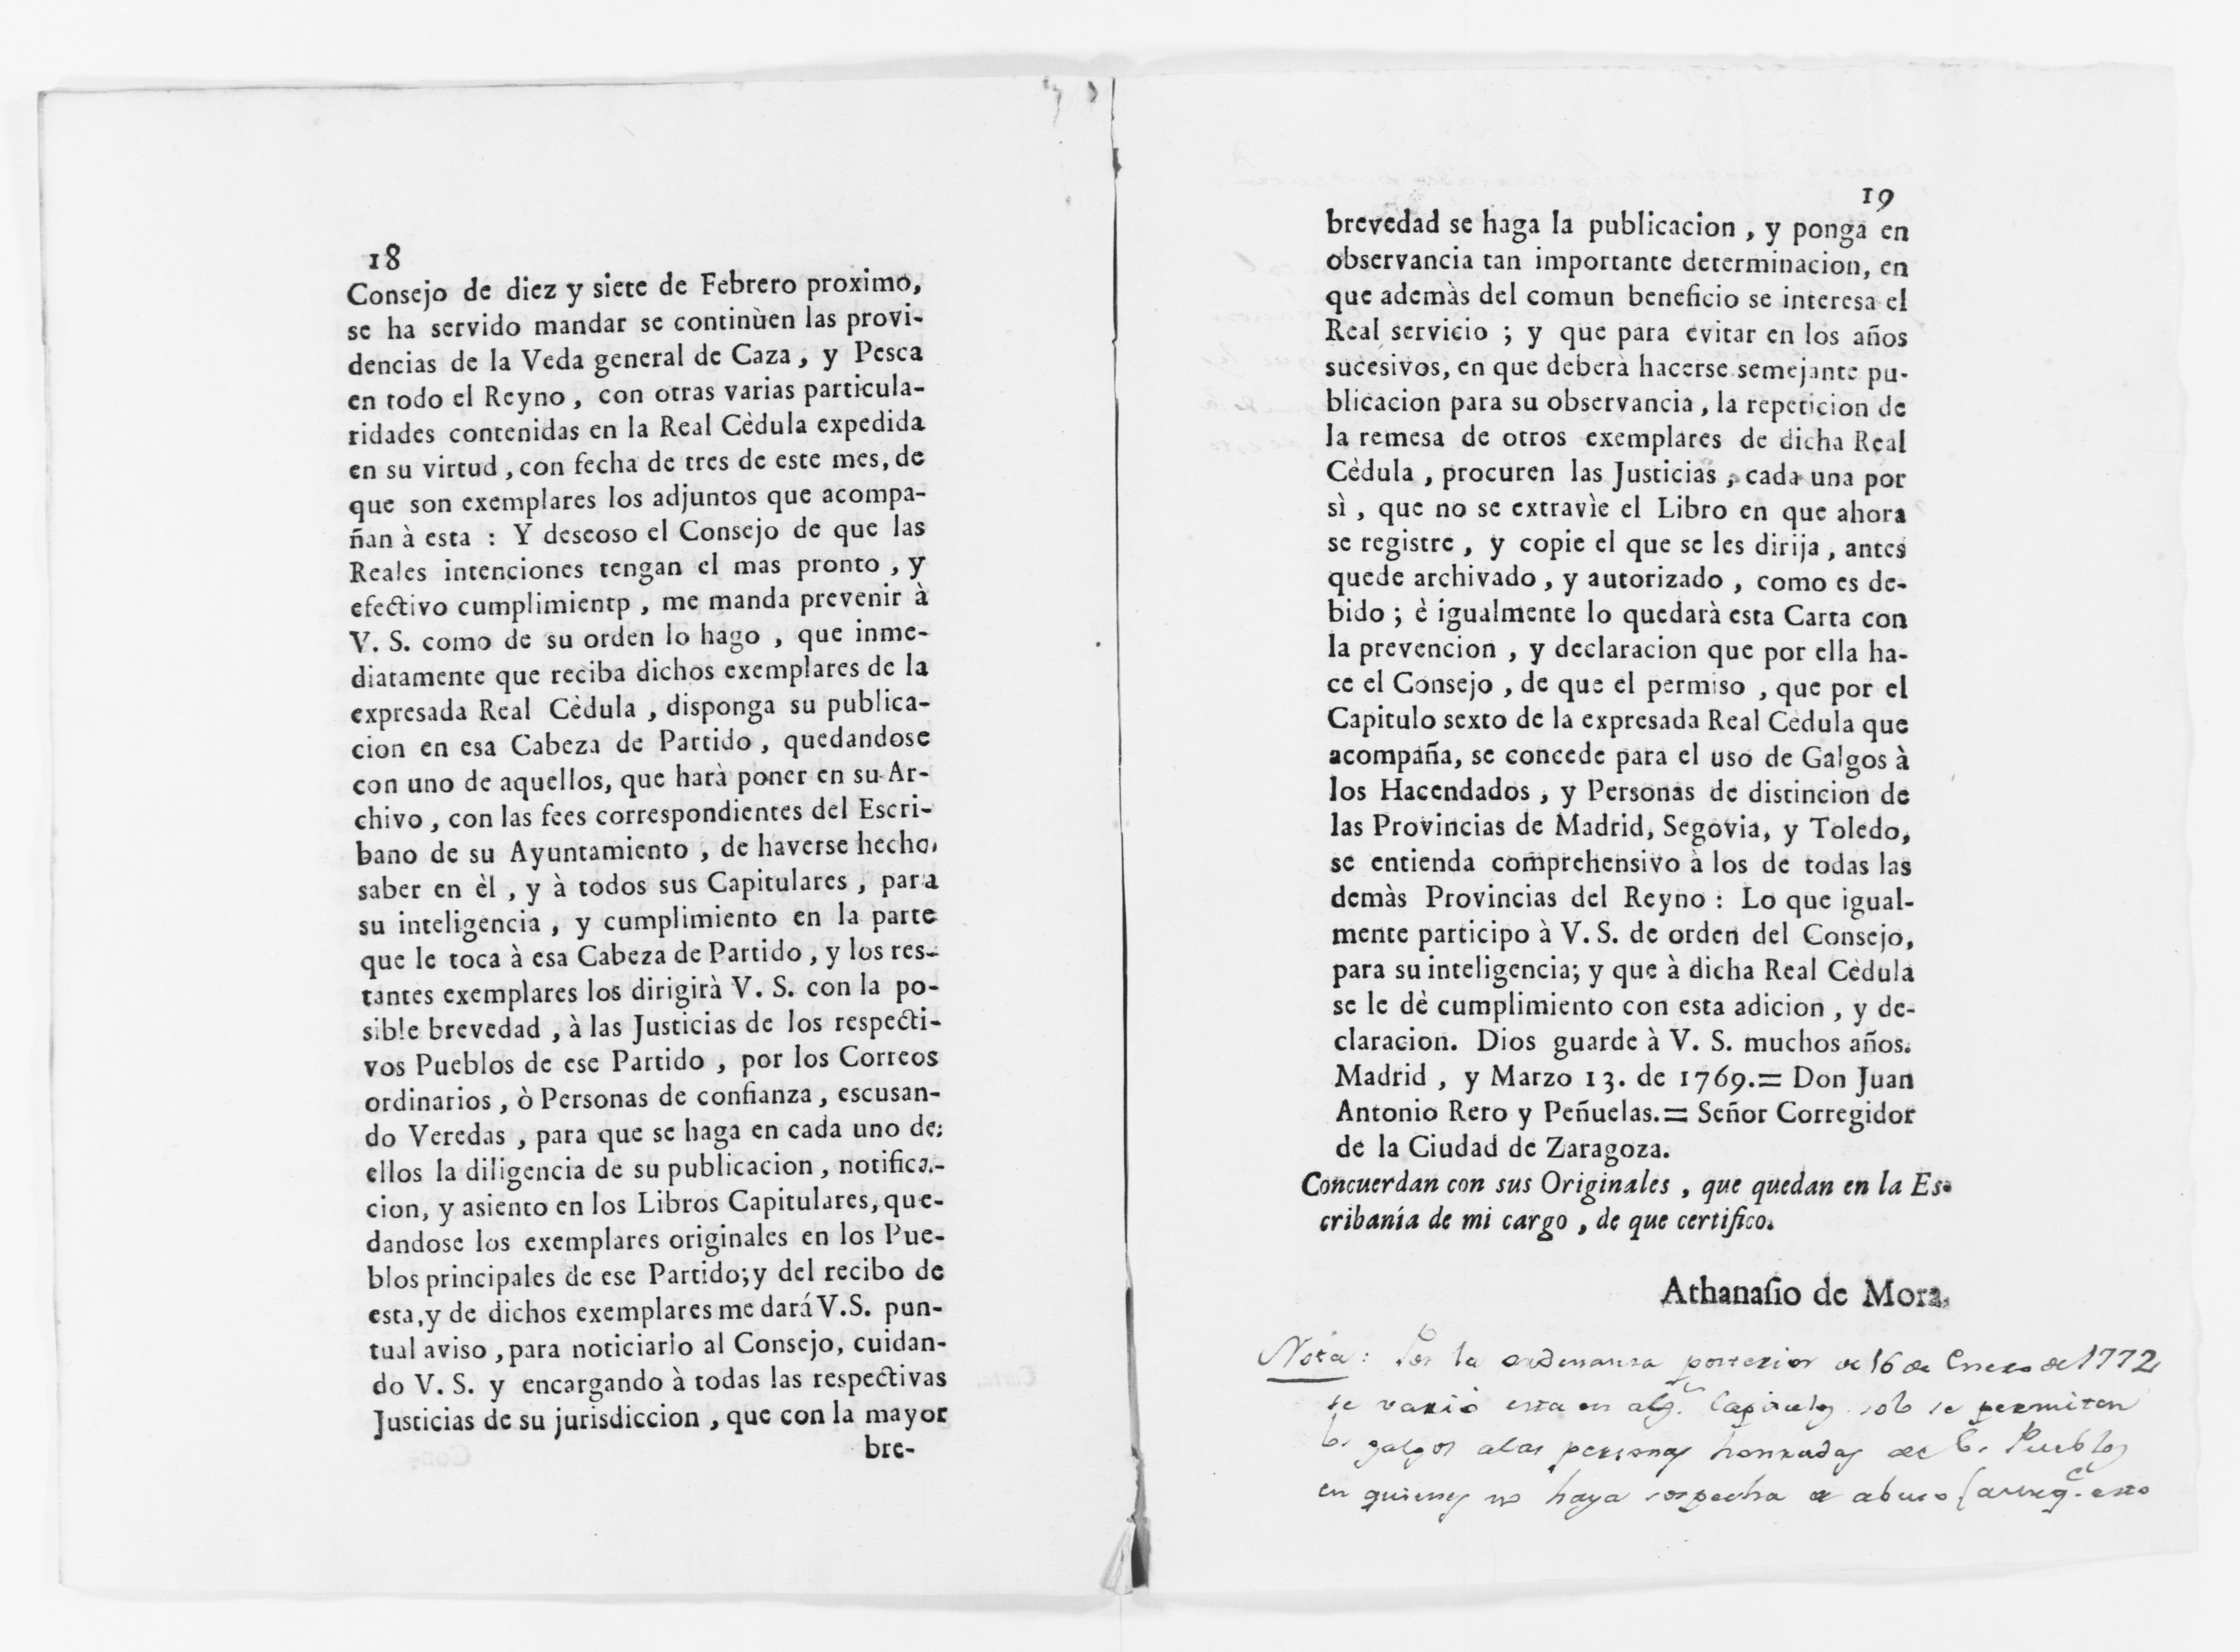 18
Consejo de diez y siete de Febrero proximo,
se ha servido mandar se continùen las provi-
dencias de la Veda general de Caza, y Pesca
en todo el Reyno, con otras varias particula-
ridades contenidas en la Real Cèdula expedida
en su virtud, con fecha de tres de este mes, de
que son exemplares los adjuntos que acompa-
ñan à esta : Y deseoso el Consejo de que las
Reales intenciones tengan el mas pronto, y
efectivo cumplimientp, me manda prevenir à
V. S. como de su orden lo hago, que inme-
diatamente que reciba dichos exemplares de la
expresada Real Cèdula, disponga su publica-
cion en esa Cabeza de Partido, quedandose
con uno de aquellos, que harà poner en su Ar-
chivo, con las fees correspondientes del Escri-
bano de su Ayuntamiento, de haverse hecho
saber en èl, y à todos sus Capitulares, para
su inteligencia, y cumplimiento en la parte
que le toca à esa Cabeza de Partido, y los res-
tantes exemplares los dirigirà V. S. con la po-
sible brevedad, à las Justicias de los respecti-
vos Pueblos de ese Partido, por los Correos
ordinarios, ò Personas de confianza, escusan-
do Veredas, para que se haga en cada uno de
ellos la diligencia de su publicacion, notifica-
cion, y asiento en los Libros Capitulares, que-
dandose los exemplares originales en los Pue-
blos principales de ese Partido; y del recibo de
esta, y de dichos exemplares me dará V.S. pun-
tual aviso, para noticiarlo al Consejo, cuidan-
do V. S. y encargando à todas las respectivas
Justicias de su jurisdiccion, que con la mayor
bre-
19
brevedad se haga la publicacion, y ponga en
observancia tan importante determinacion, en
que ademàs del comun beneficio se interesa el
Real servicio ; y que para evitar en los años
sucesivos, en que deberà hacerse semejante pu-
blicacion para su observancia, la repeticion de
la remesa de otros exemplares de dicha Real
Cèdula, procuren las Justicias, cada una por
sì, que no se extravìe el Libro en que ahora
se registre, y copie el que se les dirija, antes
quede archivado, y autorizado, como es de-
bido ; è igualmente lo quedarà esta Carta con
la prevencion, y declaracion que por ella ha-
ce el Consejo, de que el permiso, que por el
Capitulo sexto de la expresada Real Cèdula que
acompaña, se concede para el uso de Galgos à
los Hacendados, y Personas de distincion de
las Provincias de Madrid, Segovia, y Toledo,
se entienda comprehensivo à los de todas las
demàs Provincias del Reyno : Lo que igual-
mente participo à V. S. de orden del Consejo,
para su inteligencia; y que à dicha Real Cèdula
se le dè cumplimiento con esta adicion, y de-
claracion. Dios guarde à V. S. muchos años.
Madrid, y Marzo 13. de 1769.= Don Juan
Antonio Rero y Peñuelas.= Señor Corregidor
de la Ciudad de Zaragoza.
Concuerdan con sus Originales, que quedan en la Es-
cribanía de mi cargo, de que certifico.
Athanasio de Mora.
Nota: Por la ordenanza posterior de 16 de Enero de 1772
se varió esta en alg.s Capitulos solo se permiten
galgos a las personas honrradas de Pueblos
en quienes no haya sospecha de abuso